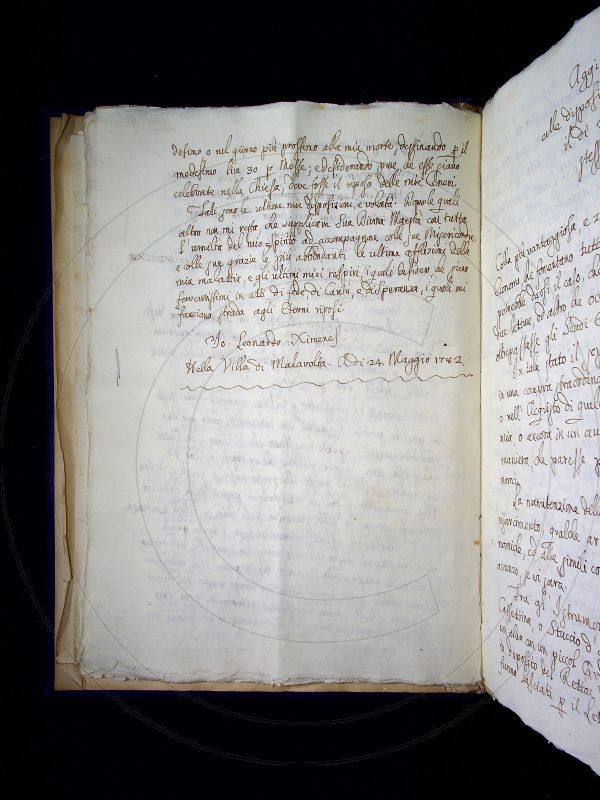 desimo o nel giorno più prossimo alla mia morte, destinando p il
medesimo lire 30 p Messe; e desiderando pure, che esse siano
celebrate nella Chiesa, dove fosse il riposo delle mie Ceneri.
Tali sono le ultime mie disposizioni, e volontà. Dopo le quali
altro non mi resta, che supplicare Sua Divina Maestà con tutta
l'umiltà del mio spirito ad accompagnare colle sue Misericordie,
e colle sue grazie le più abbondanti le ultime afflizioni della
mia malattia, e gli ultimi miei respiri, i quali desidero, che siano
ferventissimi in atti di fede, di Carità, e di speranza, i quali mi
facciano strada agli Eterni riposi.
Io Leonardo Ximenes.
Nella Villa di Malavolta. A dì 24. Maggio 1782.
Aggi
alle disposi
il dì
stess
Cosa più vantaggiosa e
tutt
potrebbe darsi il caso, che
due lettere ad altro
oltrepassasse gli Scudi
In tale stato il
in una compra straordina
o nell' Acquisto di qual
o ancora in un au
maniera, che paresse
nomia.
La manutenzione delle
risarcimento qualche ar
nomiche, ed altre simili co
avanzo, se vi sarà.
Fra gl' Istrumen
Cassettina, o Stuccio d'
un altro con un piccol
in deposito del Rettore
furono lasciati p il Le